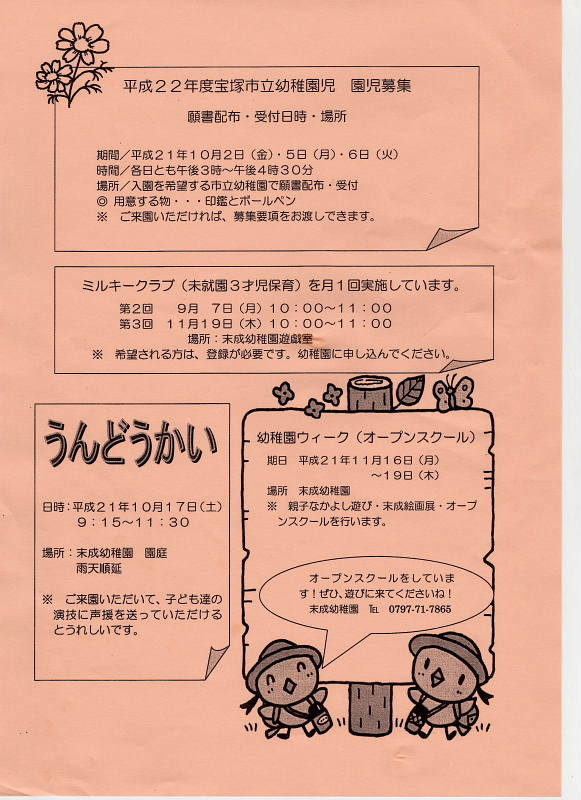 平成22年度宝塚市立幼稚園児　園児募集
願書配布・受付日時・場所
期間／平成21年10月2日（金）・5日（月）・6日（火）
時間／各日とも午後3時～午後4時30分
場所／入園を希望する市立幼稚園で願書配布・受付
◎ 用意する物・・・印鑑とボールペン
※　ご来園いただければ、募集要項をお渡しできます。
ミルキークラブ（未就園3才児保育）を月1回実施しています。
第2回　9月　7日（月）10：00～11：00
第3回　11月19日（木）10：00～11：00
場所：末成幼稚園遊戯室
※　希望される方は、登録が必要です。幼稚園に申し込んでください。
うんどうかい
日時：平成21年10月17日（土）
9：15～11：30
場所：末成幼稚園　園庭
雨天順延
※　ご来園いただいて、子ども達の
演技に声援を送っていただける
とうれしいです。
幼稚園ウィーク（オープンスクール）
期日　平成21年11月16日（月）
～19日（木）
場所　末成幼稚園
※　親子なかよし遊び・末成絵画展・オープ
ンスクールを行います。
オープンスクールをしていま
す！ぜひ、遊びに来てくださいね！
末成幼稚園　℡　0797-71-7865